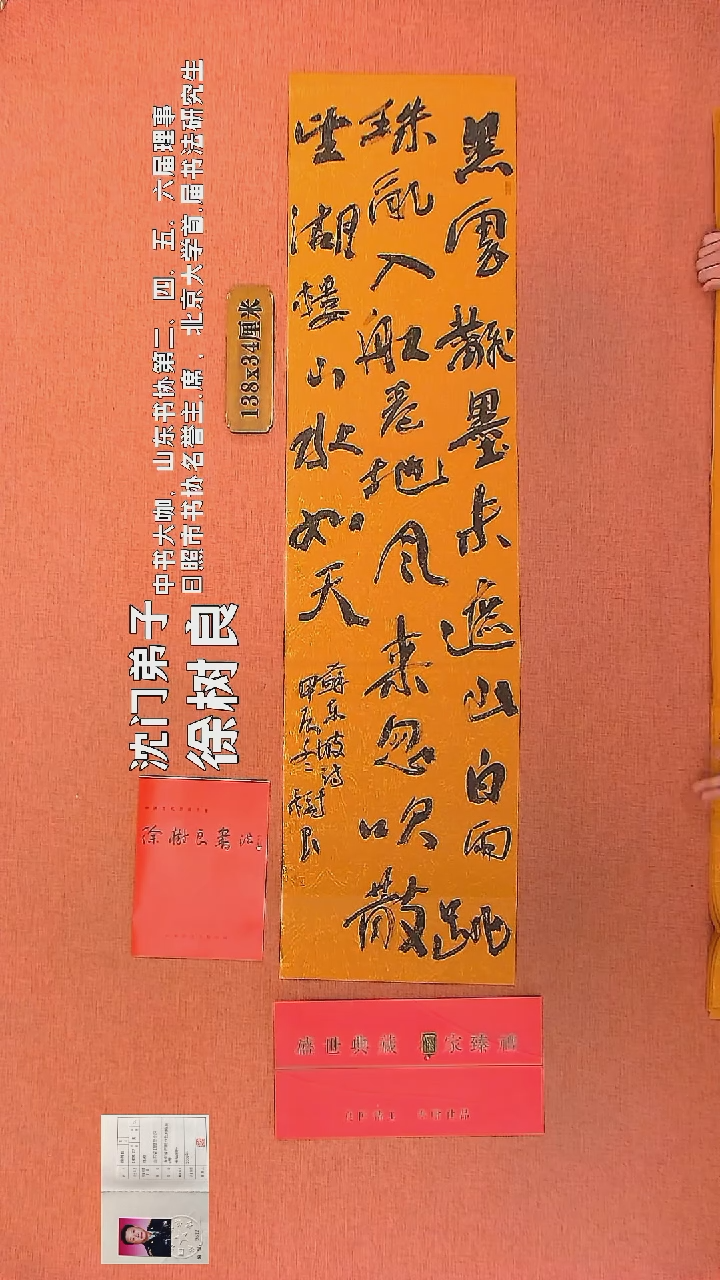 黑雲翻墨未遮山白雨跳
珠亂入船卷地風来忽吹散
望湖樓下水如天
蘇東坡詩
甲辰之冬樹良
沈门弟子
徐树良
中书大咖、山东书协第二、四、五、六届理事
日照市书协名誉主席、北京大学首届书法研究生
138x34厘米
徐樹良書法
盛世典藏 家臻